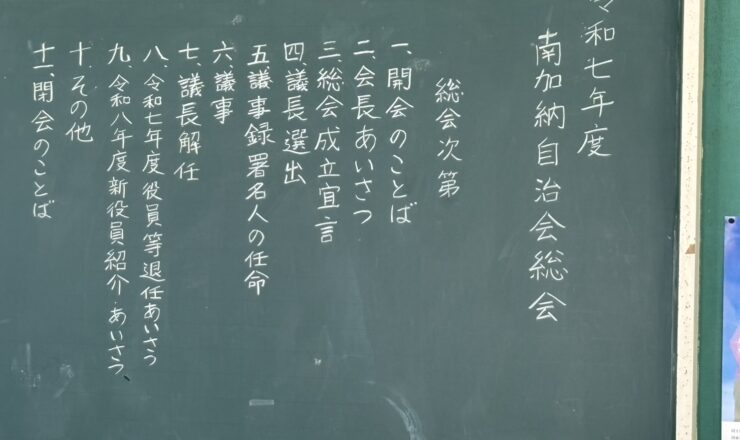 令和七年度
南加納自治会総会
総会次第
一、開会のことば
二、会長あいさつ
三、総会成立宣言
四、議長選出
五、議事録署名人の任命
六、議事
七、議長解任
八、令和七年度役員等退任あいさつ
九、令和八年度新役員紹介・あいさつ
十、その他
十一、閉会のことば